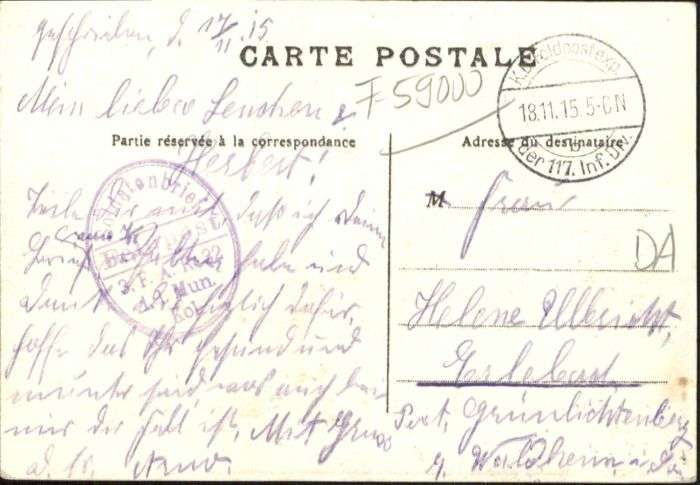 geschrieben, d. 17/11.15
CARTE POSTALE
F 59000
Mein liebes Lenchen &
Herbert!
Partie réservée à la correspondance
Adresse du destinataire
K.D. Feldpostexp.
18.11.15. 5-6 N
b
der 117. Inf. Div.
Soldatenbrief
3. F. A. R.
Mun.
Kol.
Teile mit daß ich Deinen
Brief erhalten habe und
danke dafür,
hoffe das Ihr gesund und
munter seid was auch bei
mir der Fall ist. Mit Gruß
M. Frau
DA
Helene Ulbricht,
Erlebach
Post, Grünlichtenberg
b. Waldheim i. Sa.